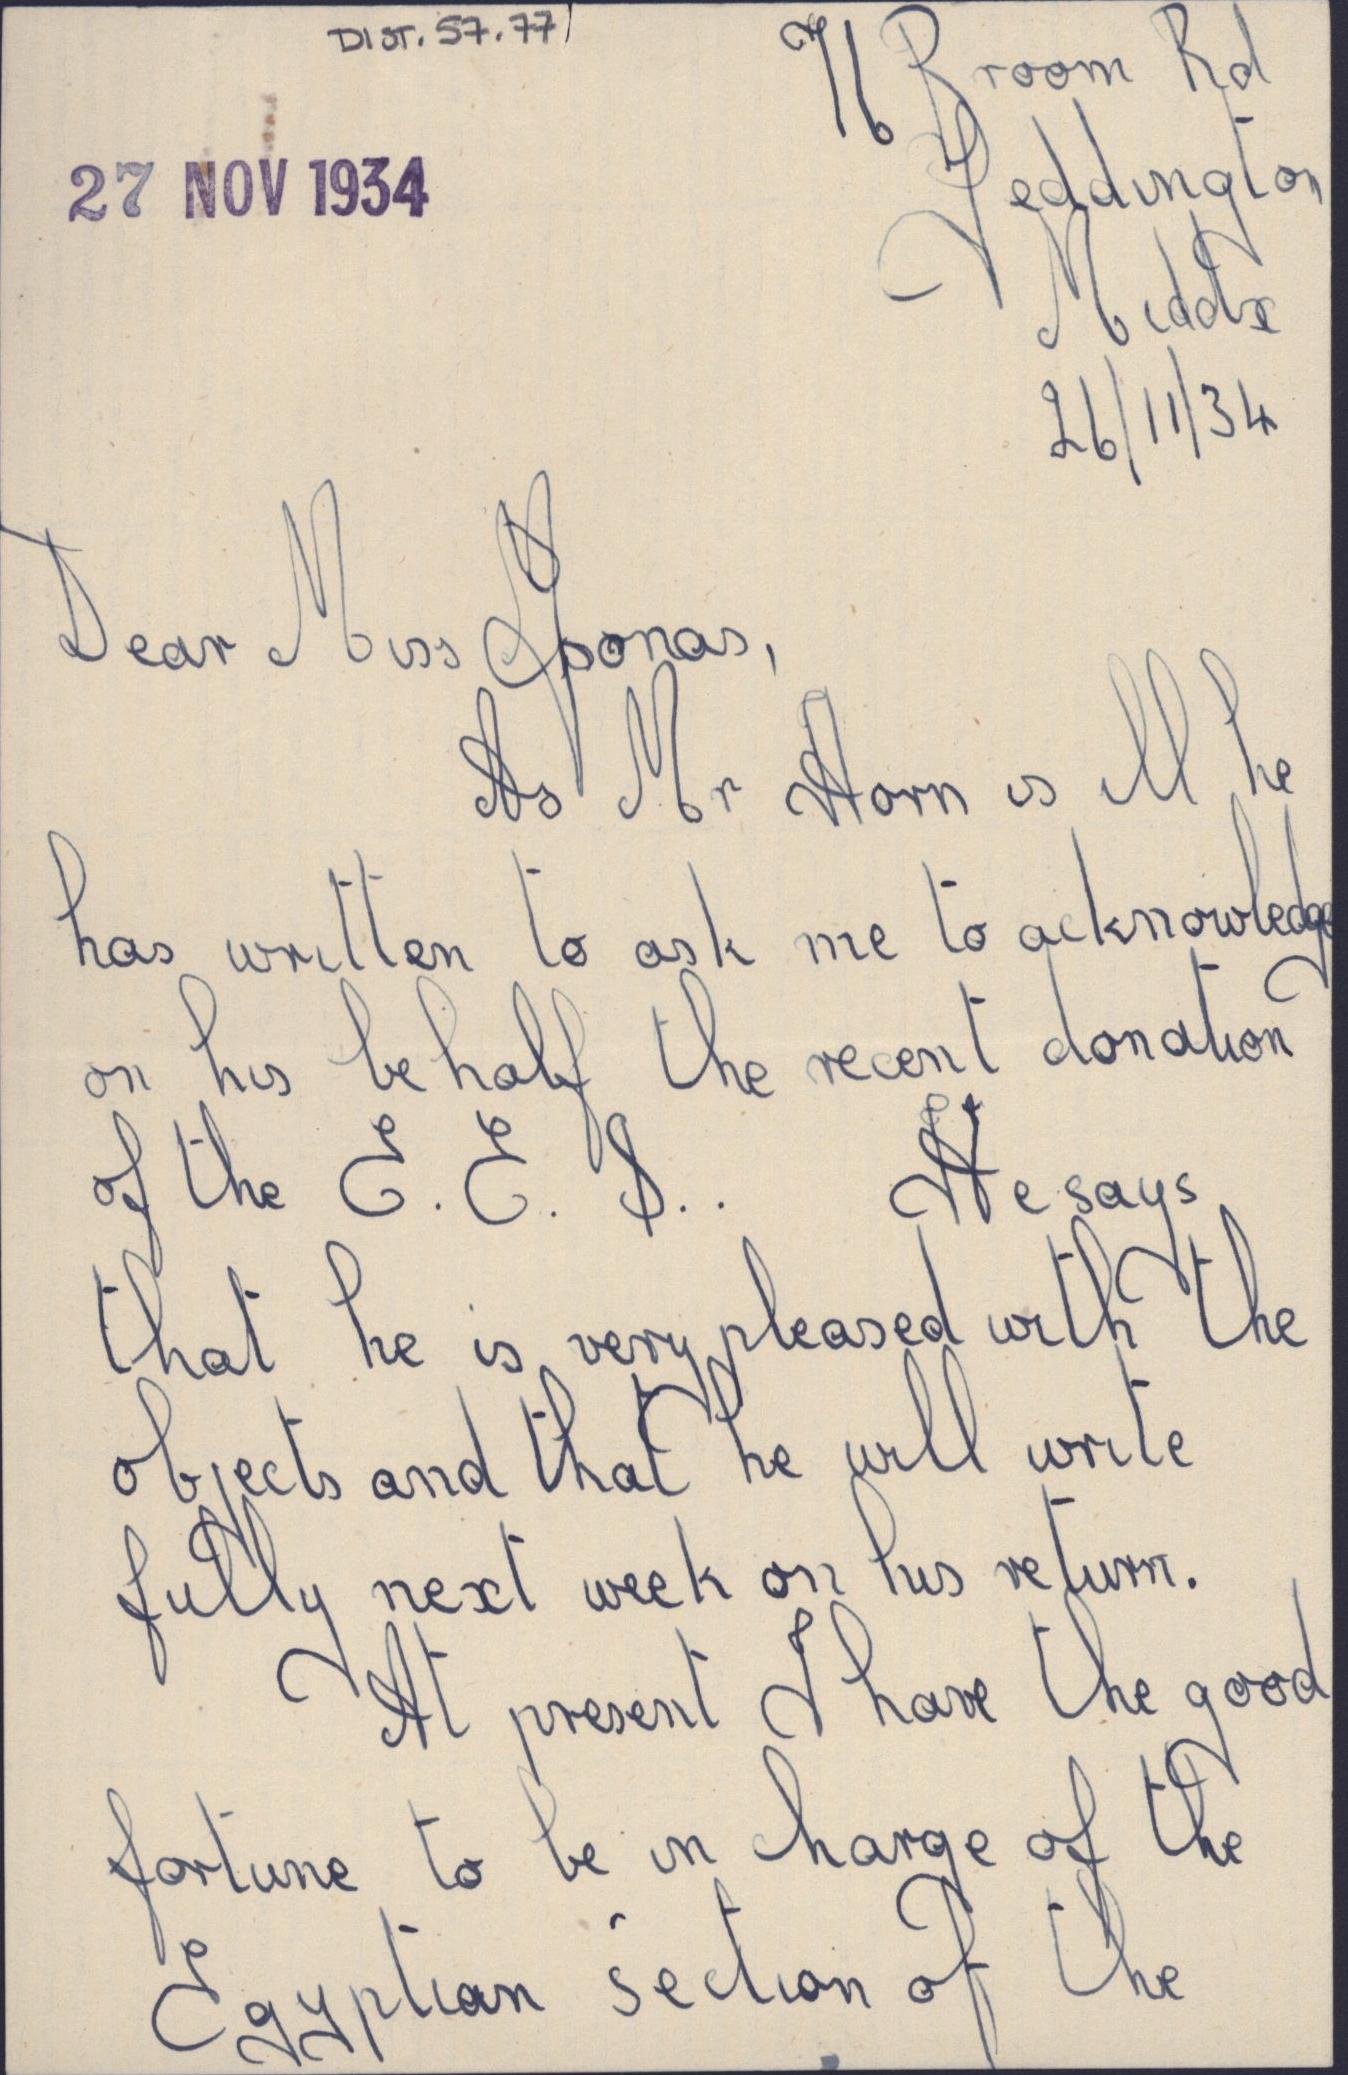 DIST. 57.77
76 Broom Rd
Teddington
Middx
26/11/34
27 NOV 1934
Dear Miss Jonas,
As Mr Horn is ill he
has written to ask me to acknowledge
on his behalf the recent donation
of the E. E. S.. He says
that he is very pleased with the
objects and that he will write
fully next week on his return.
At present I have the good
fortune to be in charge of the
Egyptian section of the